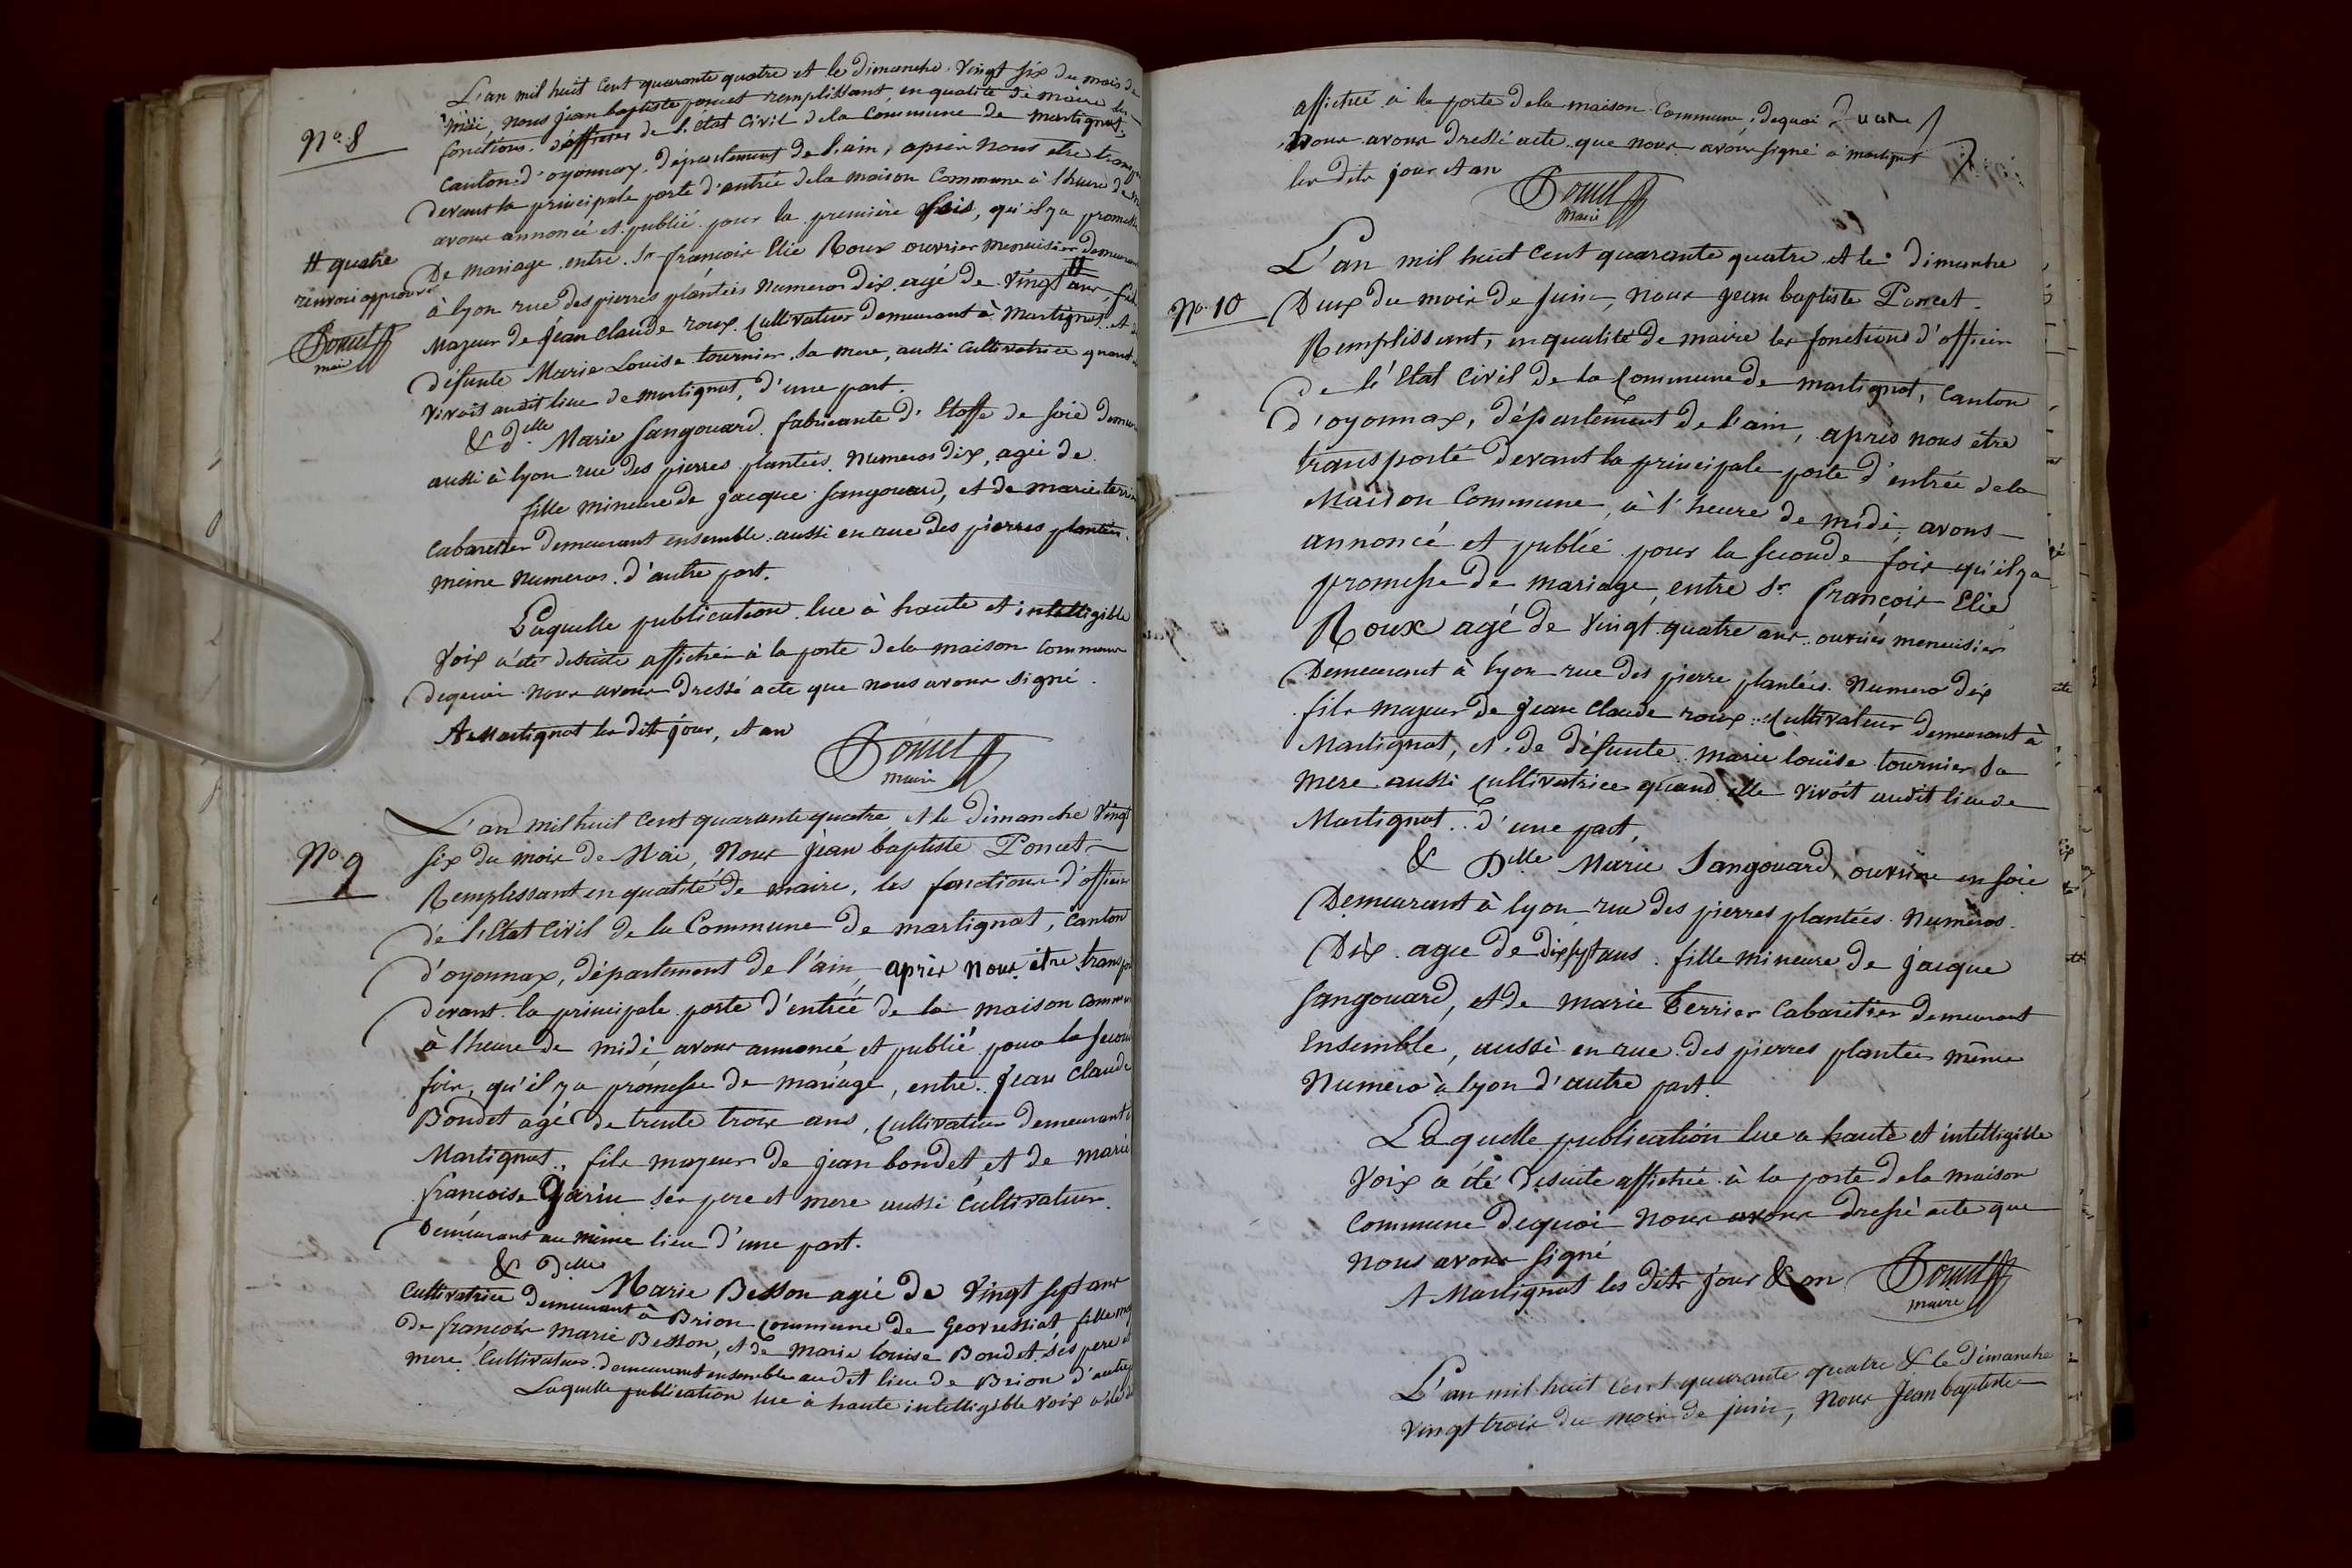 L'an mil huit cent quarante quatre et le dimanche vingt six du mois de
mai, nous jean baptiste poncet remplissant, en qualité de maire les
No. 8
fonctions d'officier de l'état Civil dela Commune de martignat,
canton d'oyonnax, département de l'ain, après nous etre
devant la principale porte d'entrée dela maison Commune à l'heure de
avons annoncé et publié pour la première fois, qu'il y a promesse
# quatre
renvoi approuvé
Poncet
maire
De mariage entre Sr françois Elie Roux ouvrier menuisier
à lyon rue des pierres plantées numeros dix agé de vingt # ans, fils
Majeur de jean claude roux Cultivateur demeurant à Martignat, et de
défunte Marie Louise tournier sa mere, aussi Cultivatrice quand
vivoit audit lieu de martignat, d'une part.
& dlle Marie Sangouard fabricante d'Etoffe de soie
aussi à lyon rue des pierres plantées numeros dix, agée de
fille mineure de jacque sangouard, et de marie
cabaretier demeurant ensemble aussi en rue des pierres plantées
meme numeros d'autre part.
Laquelle publication lue à haute et intelligible
voix a été desuite affichée à la porte dela maison commune
dequoi nous avons dressé acte que nous avons signé.
A Martignat les dits jour, et an
Poncet
maire
L'an mil huit cent quarante quatre et le dimanche vingt
No 9
six du mois de Mai, Nous jean baptiste Poncet
Remplissant en qualité de maire, les fonctions d'officier
de l'Etat Civil de la Commune de martignat, canton
d'oyonnax, département de l'ain, après nous être
devant la principale porte d'entrée de la maison
à l'heure de midi avons annoncé et publié pour la
fois, qu'il y a promesse de mariage, entre jean claude
Bondet agé de trente trois ans, cultivateur demeurant
Martignat, fils majeur de jean bondet, et de marie
francoise ses pere et mere aussi Cultivateur
Demeurant au même lieu d'une part.
& dlle Marie Besson agée de vingt sept ans
Cultivatrice demeurant à Brion Commune de Geovressiat fille
de francois marie Besson, et de marie louise Bondet ses pere et
mere Cultivateurs demeurant ensemble au dit lieu de Brion d'autre
Laquelle publication lue à haute intelligible voix a été
affichée à la porte dela maison Commune, dequoi
nous avons dressé acte que nous avons signé a martignat
les dits jour et an
Poncet
Maire
L'an mil huit cent quarante quatre et le dimanche
No. 10
Deux du mois de juin, nous jean baptiste Poncet
Remplissant, en qualité de maire les fonctions d'officier
de l'Etat Civil de la Commune de martignat, canton
d'oyonnax, département de l'ain, après nous être
transporté devant la principale porte d'entrée dela
Maison Commune, à l'heure de midi, avons
annoncé et publié pour la seconde fois qu'il y a
promesse de mariage, entre Sr françois Elie
Roux agé de vingt quatre ans ouvrier menuisier
Demeurant à lyon rue des pierre plantées Numero dix
fils majeur de jean claude roux Cultivateur demeurant à
Martignat, et de défunte marie louise tournier sa
mere aussi cultivatrice quand elle vivoit audit lieu de
Martignat d'une part,
& Dlle Marie Sangouard, ouvrière en soie
Demeurant à lyon rue des pierres plantées Numeros
Dix agée de dix sept ans fille mineure de jacque
sangouard, et de marie Terrier Cabaretier demeurant
Ensemble, aussi en rue des pierres plantées même
Numero à lyon d'autre part.
Laquelle publication lue a haute et intelligible
voix a été desuite affichée à la porte dela maison
Commune dequoi nous avons dressé acte que
nous avons signé
A Martignat les dits jour & an
Poncet
maire
L'an mil huit cent quarante quatre & le dimanche
vingt trois du mois de juin, Nous jean baptiste